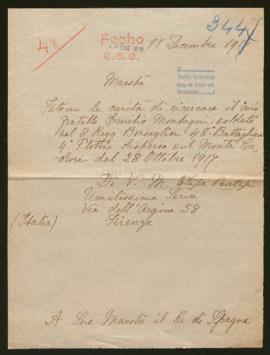 48
Fecho
e.a.e.
3447
11 Decembre 191
Maestà
Fatemi la carità di ricercare il mio
fratello Emilio Montagni, soldato
nel 8 Regg. Bersaglieri 48° Battaglione
4° Plotone disperso sul Monte Ca
dore dal 28 Ottobre 1917
Di V. M.
Umilissima Serva
Via dell'Argine 58
(Italia) Firenze
A Sua Maestà il Re di Spagna